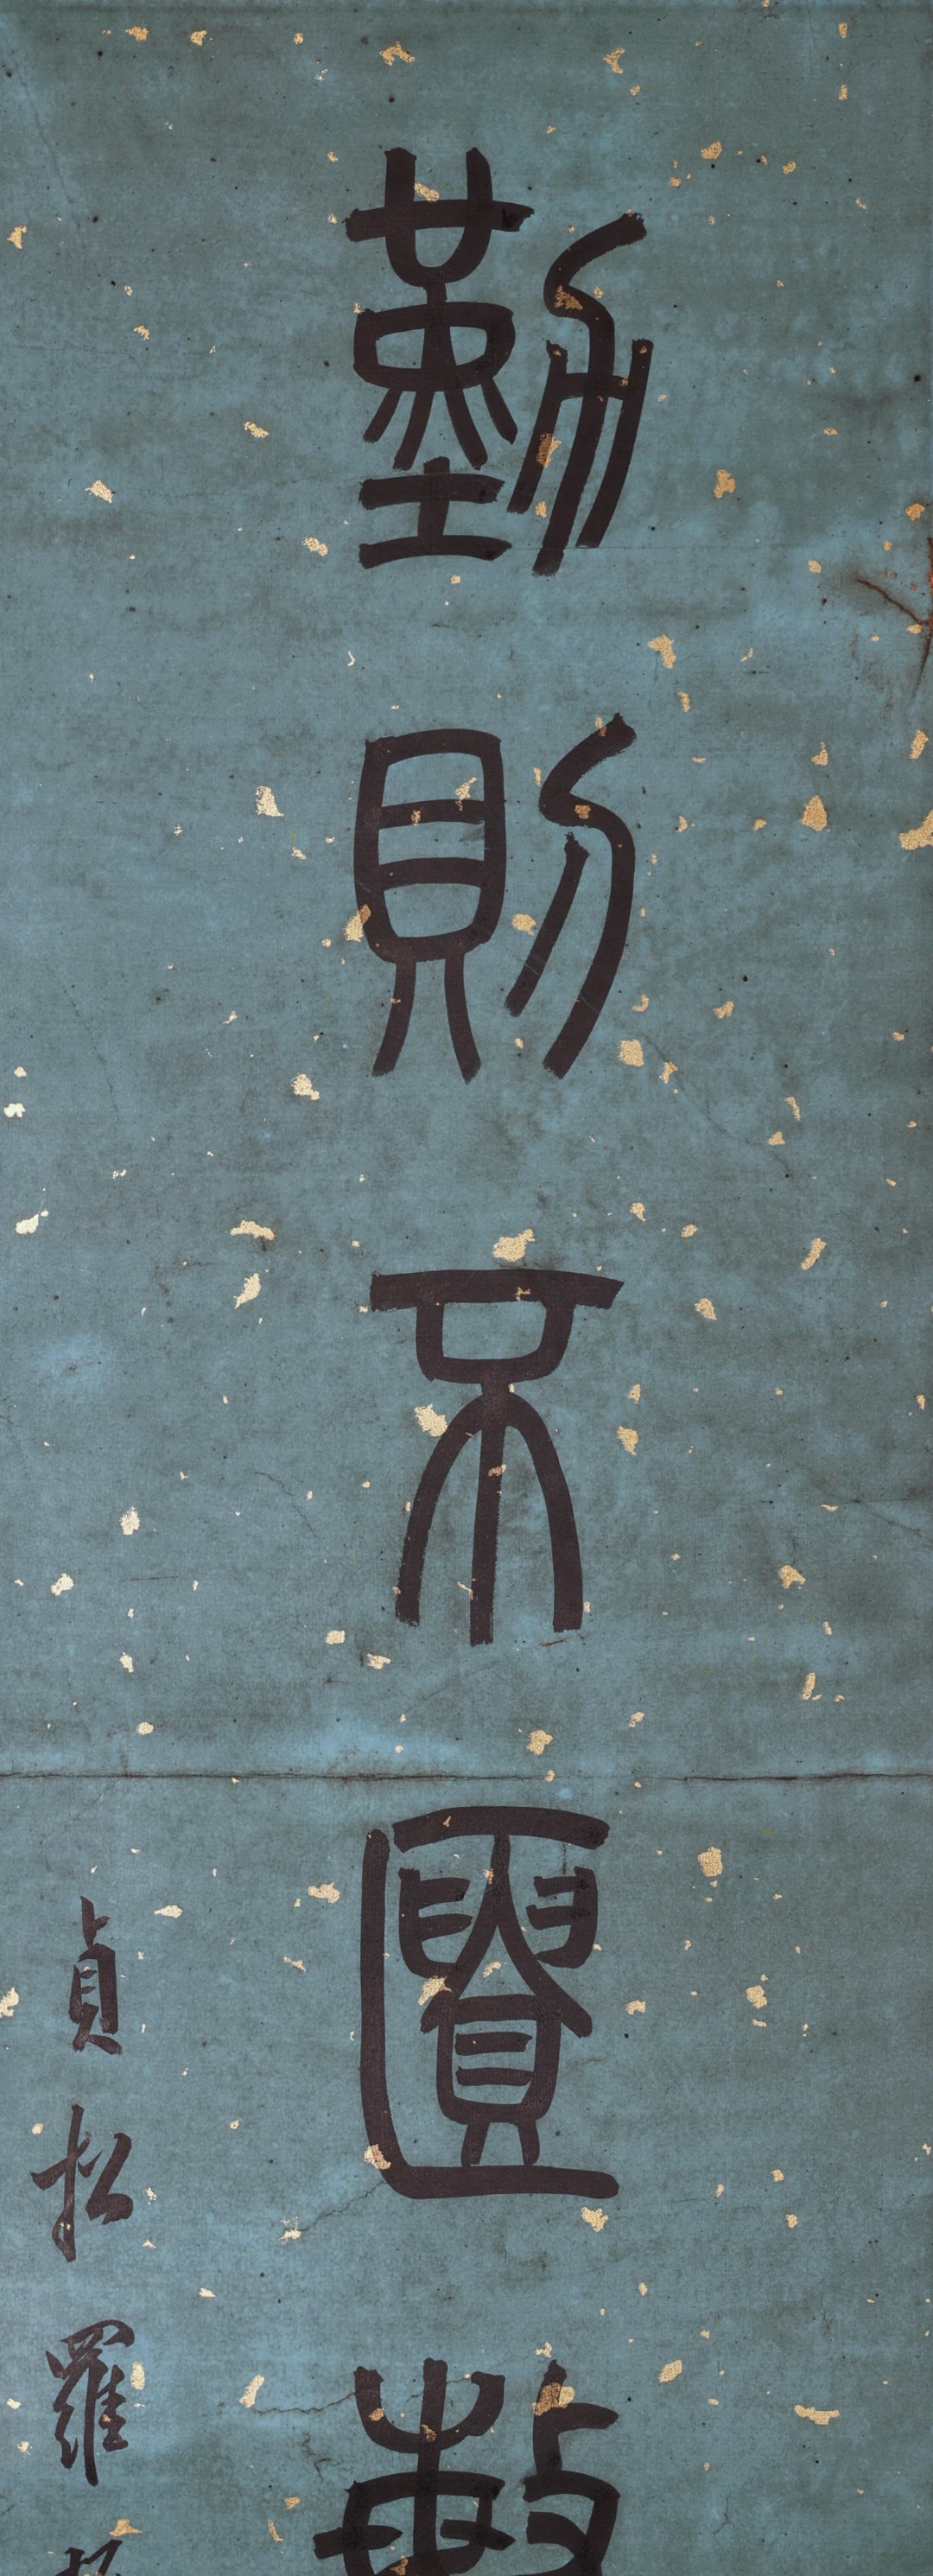 勤則不匱敏
貞松羅